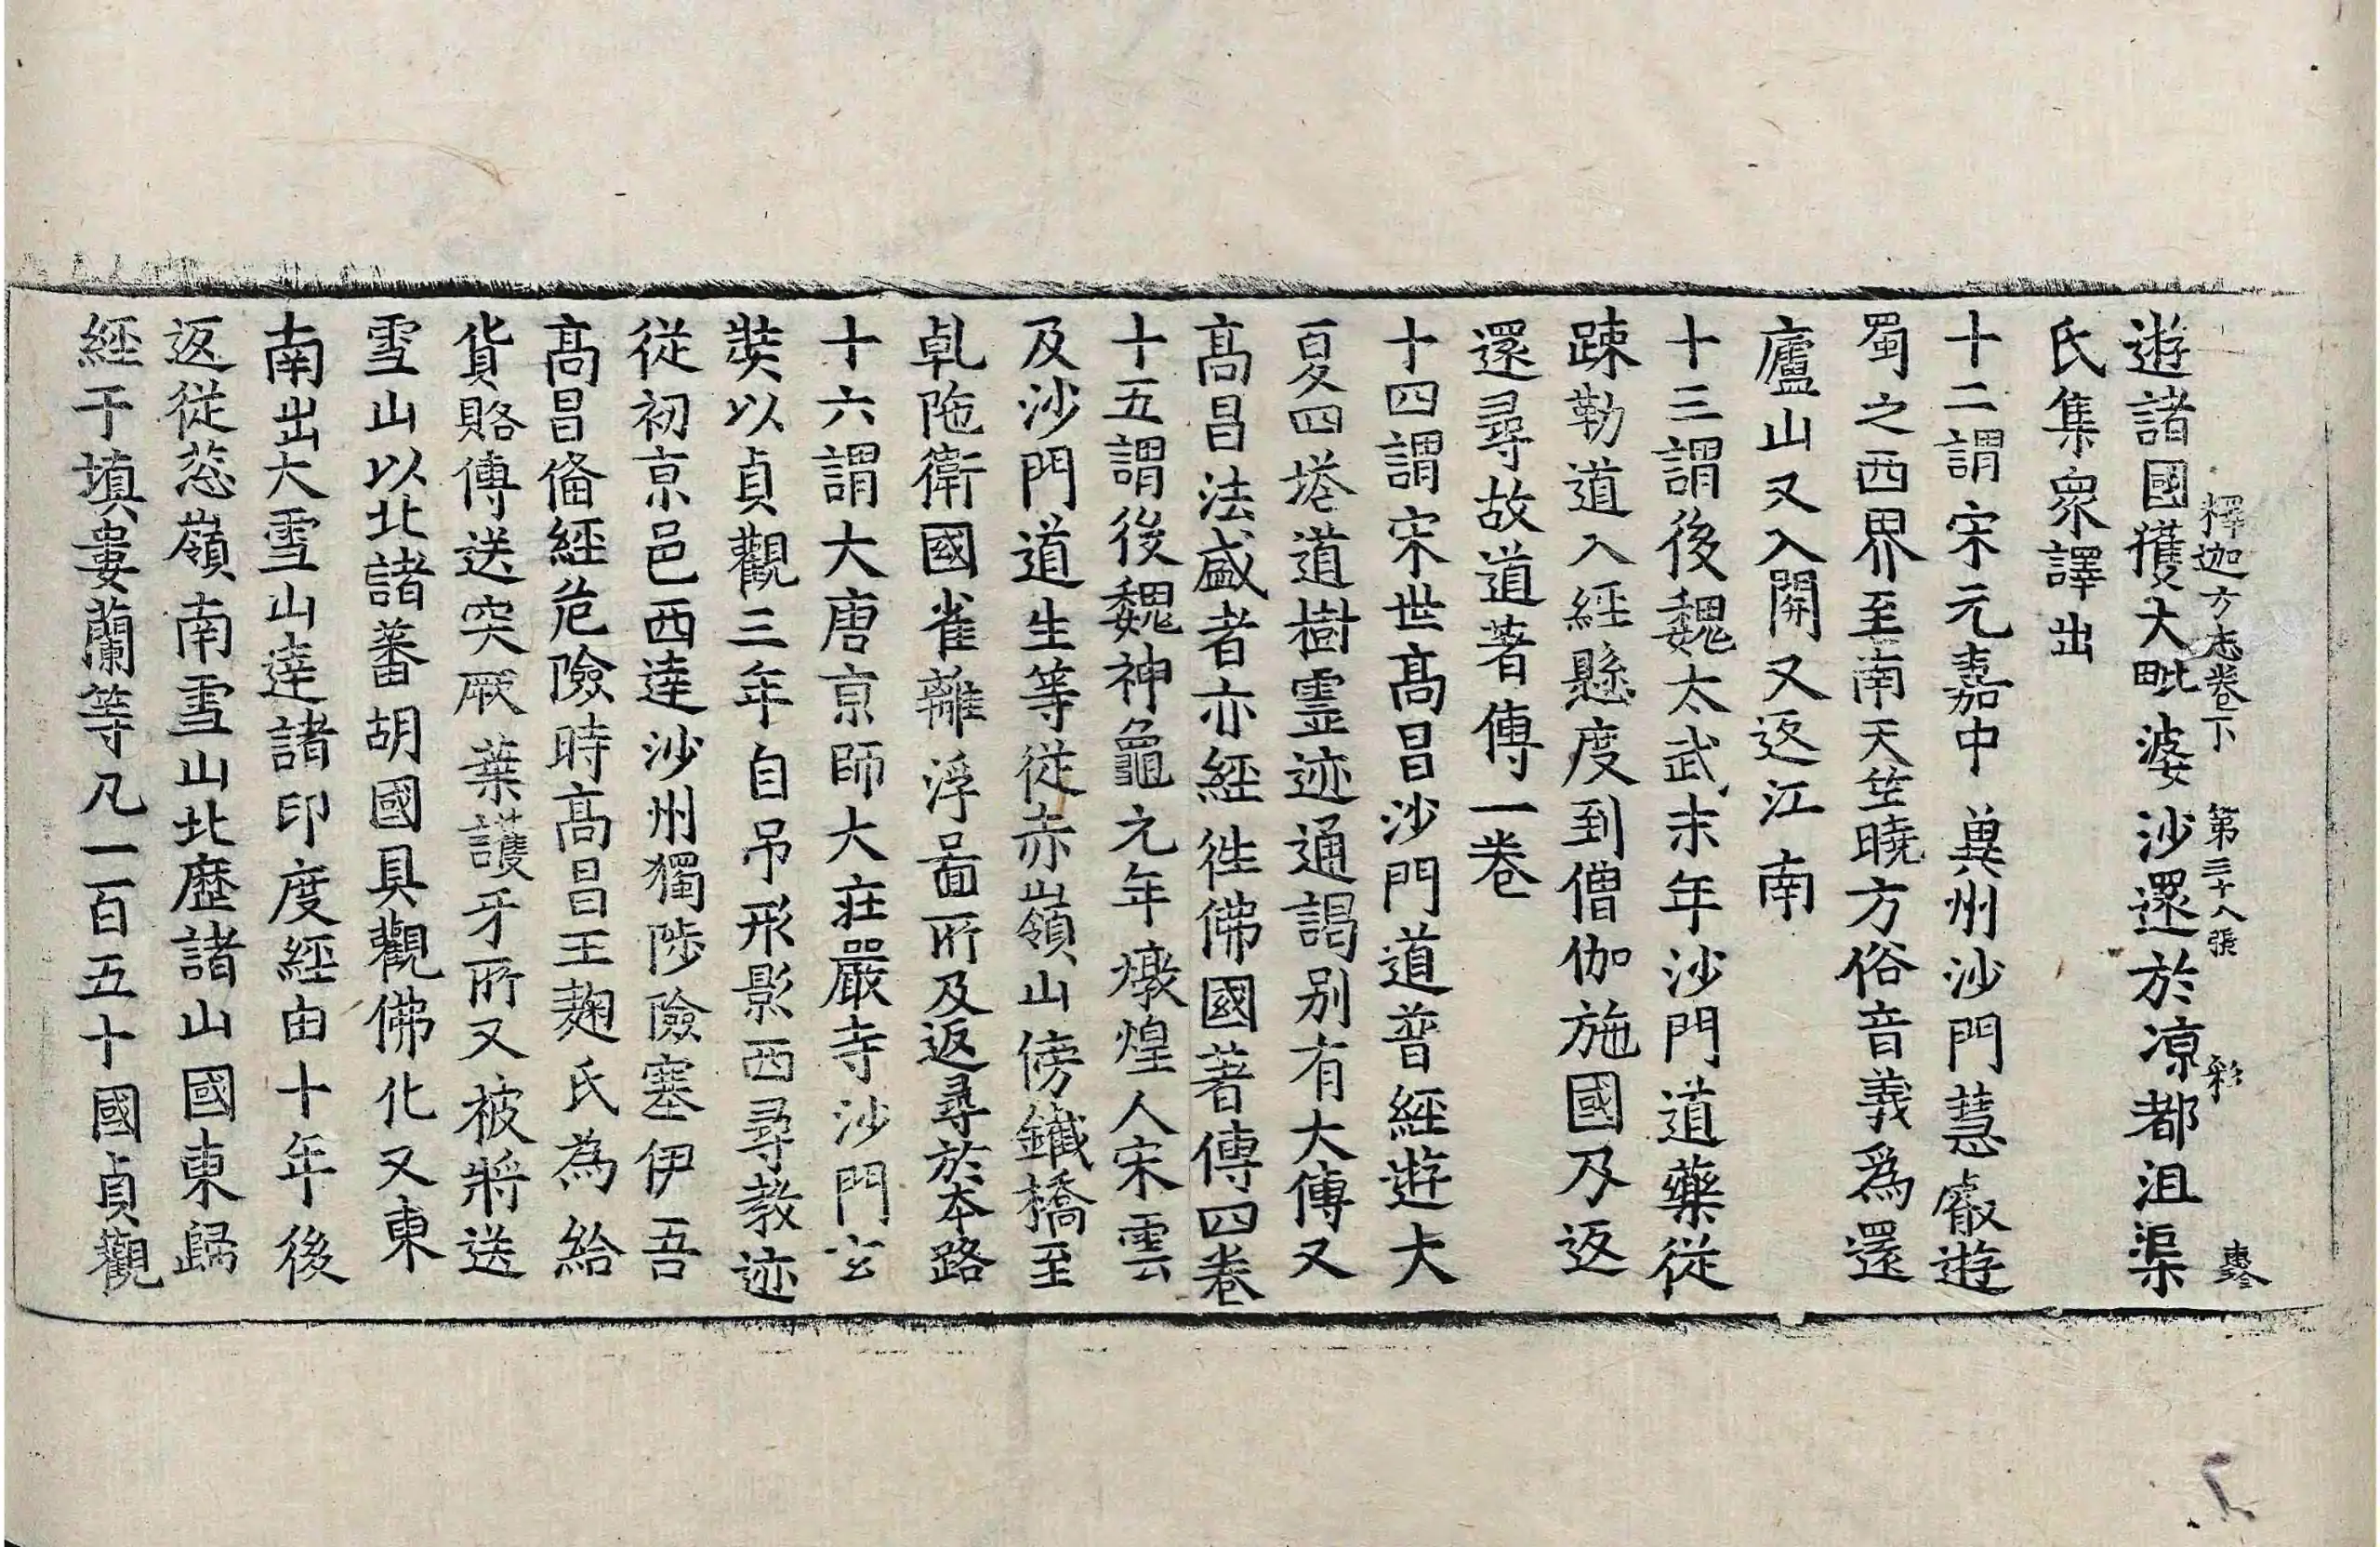 釋迦方志卷下　第三十八張　彩
遊諸國獲大毗婆沙還於涼都沮渠
氏集衆譯出
十二謂宋元嘉中兾州沙門慧叡遊
蜀之西界至南天竺曉方俗音義爲還
廬山又入開又返江南
十三謂後魏太武末年沙門道藥從
踈勒道入經懸度到僧伽施國乃返
還尋故道著傳一卷
十四謂宋世髙昌沙門道普經遊大
夏四塔道樹靈迹通謁別有大傳又
髙昌法盛者亦經徃佛國著傳四卷
十五謂後魏神龜元年燉煌人宋雲
及沙門道生等從赤嶺山傍鐵橋至
乹陁衛國雀離浮啚所及返尋於本路
十六謂大唐京師大莊嚴寺沙門玄
奘以貞觀三年自吊形影西尋教迹
從初京邑西達沙州獨陟險塞伊吾
髙昌俻經危險時髙昌王麹氏為給
貨賂傳送突厥葉護牙所又被將送
雪山以北諸蕃胡國具觀佛化又東
南出大雪山達諸印度經由十年後
返從葱嶺南雪山北歷諸山國東歸
經于填婁蘭等凡一百五十國貞觀